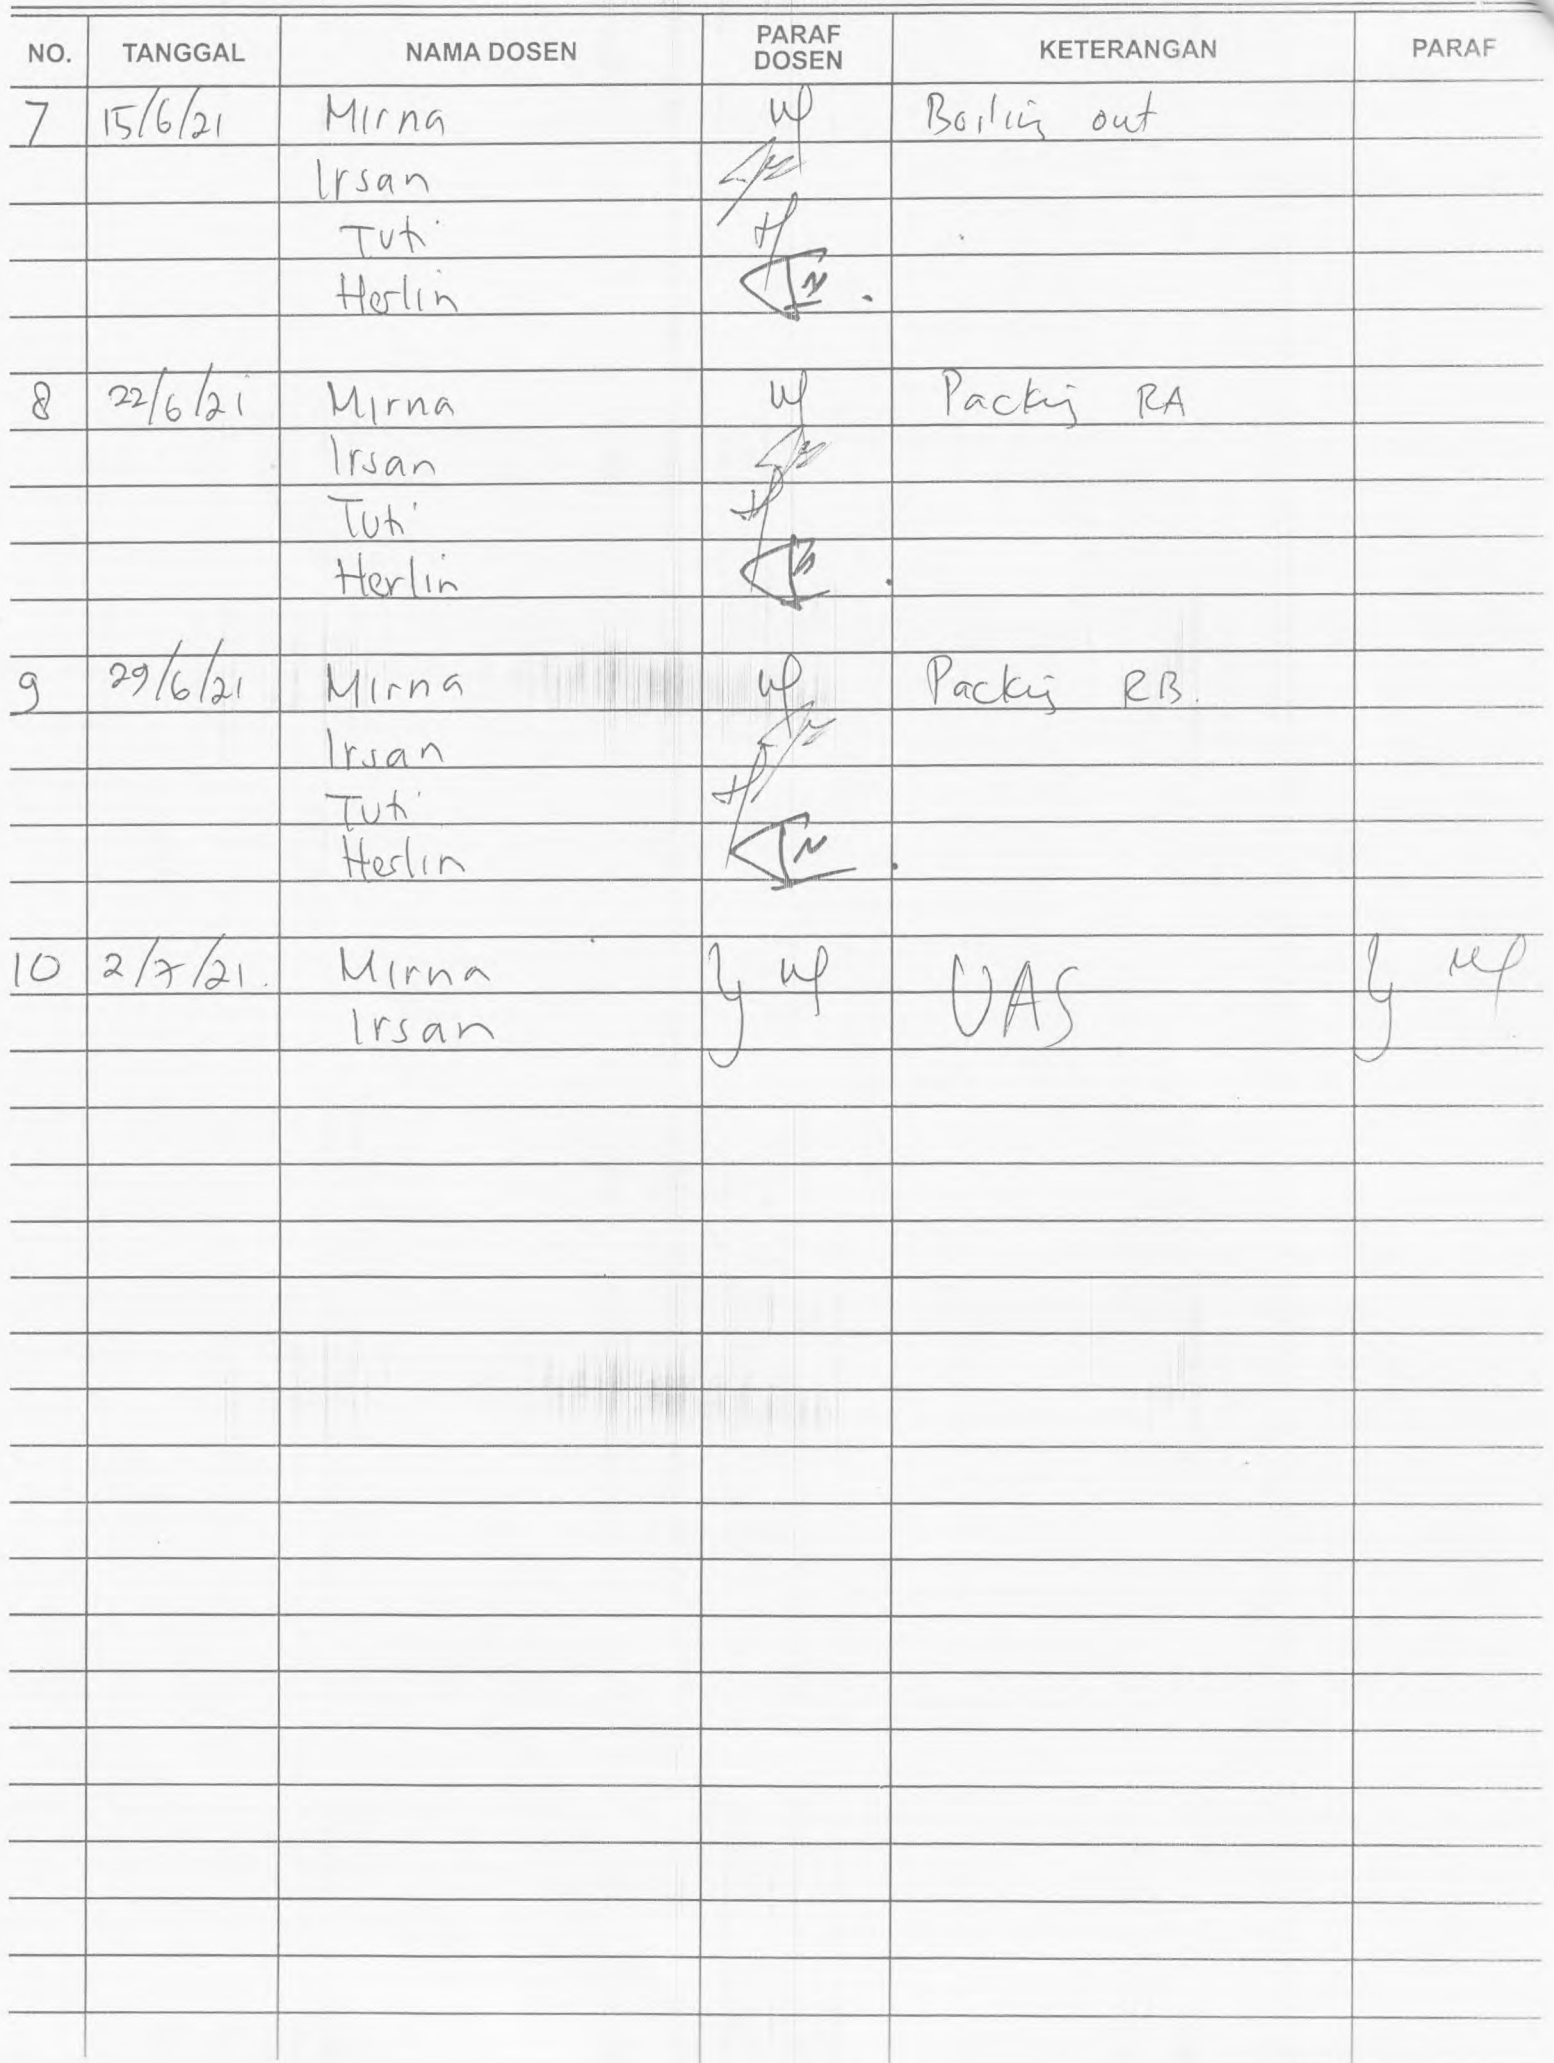 NO. TANGGAL NAMA DOSEN PARAF DOSEN KETERANGAN PARAF
7 15/6/21 Mirna Boiling out
Irsan
Tuti
Herlin
8 22/6/21 Mirna Packing RA
Irsan
Tuti
Herlin
9 29/6/21 Mirna Packing RB.
Irsan
Tuti
Herlin
10 2/7/21. Mirna UAS
Irsan